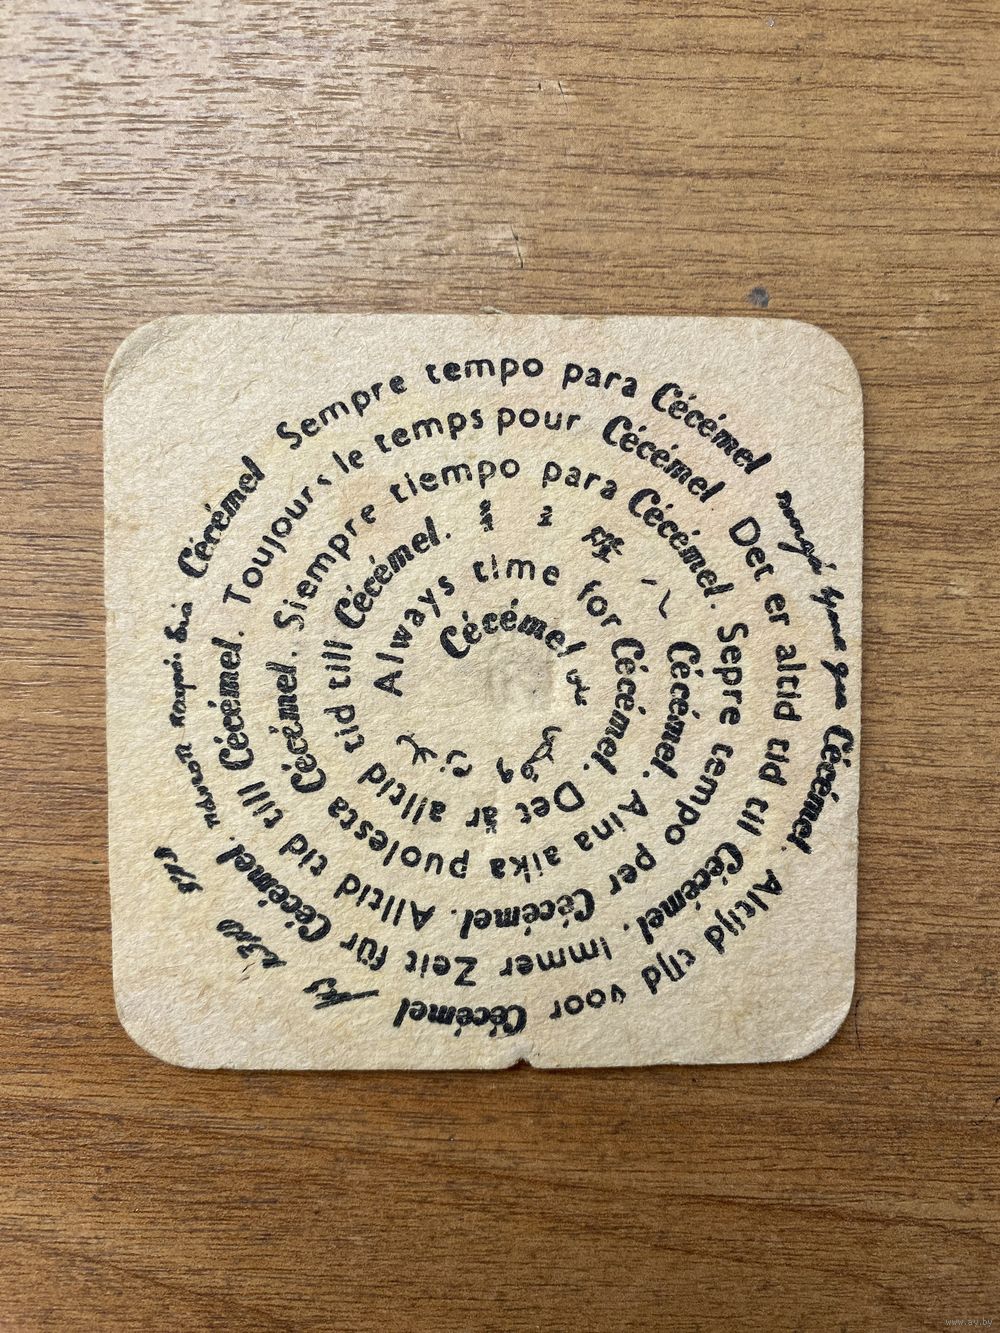 Cécémel
Always time for Cécémel.
Det är alltid tid till Cécémel.
Cécémel.
Aina aika puolesta Cécémel.
Siempre tiempo para Cécémel.
Sepre tempo per Cécémel.
Alltid tid till Cécémel.
Toujours le temps pour Cécémel.
Det er altid tid til Cécémel.
Immer Zeit für Cécémel.
καιρός διά Cécémel
Sempre tempo para Cécémel
Cécémel.
Altijd tijd voor Cécémel
www.ay.by